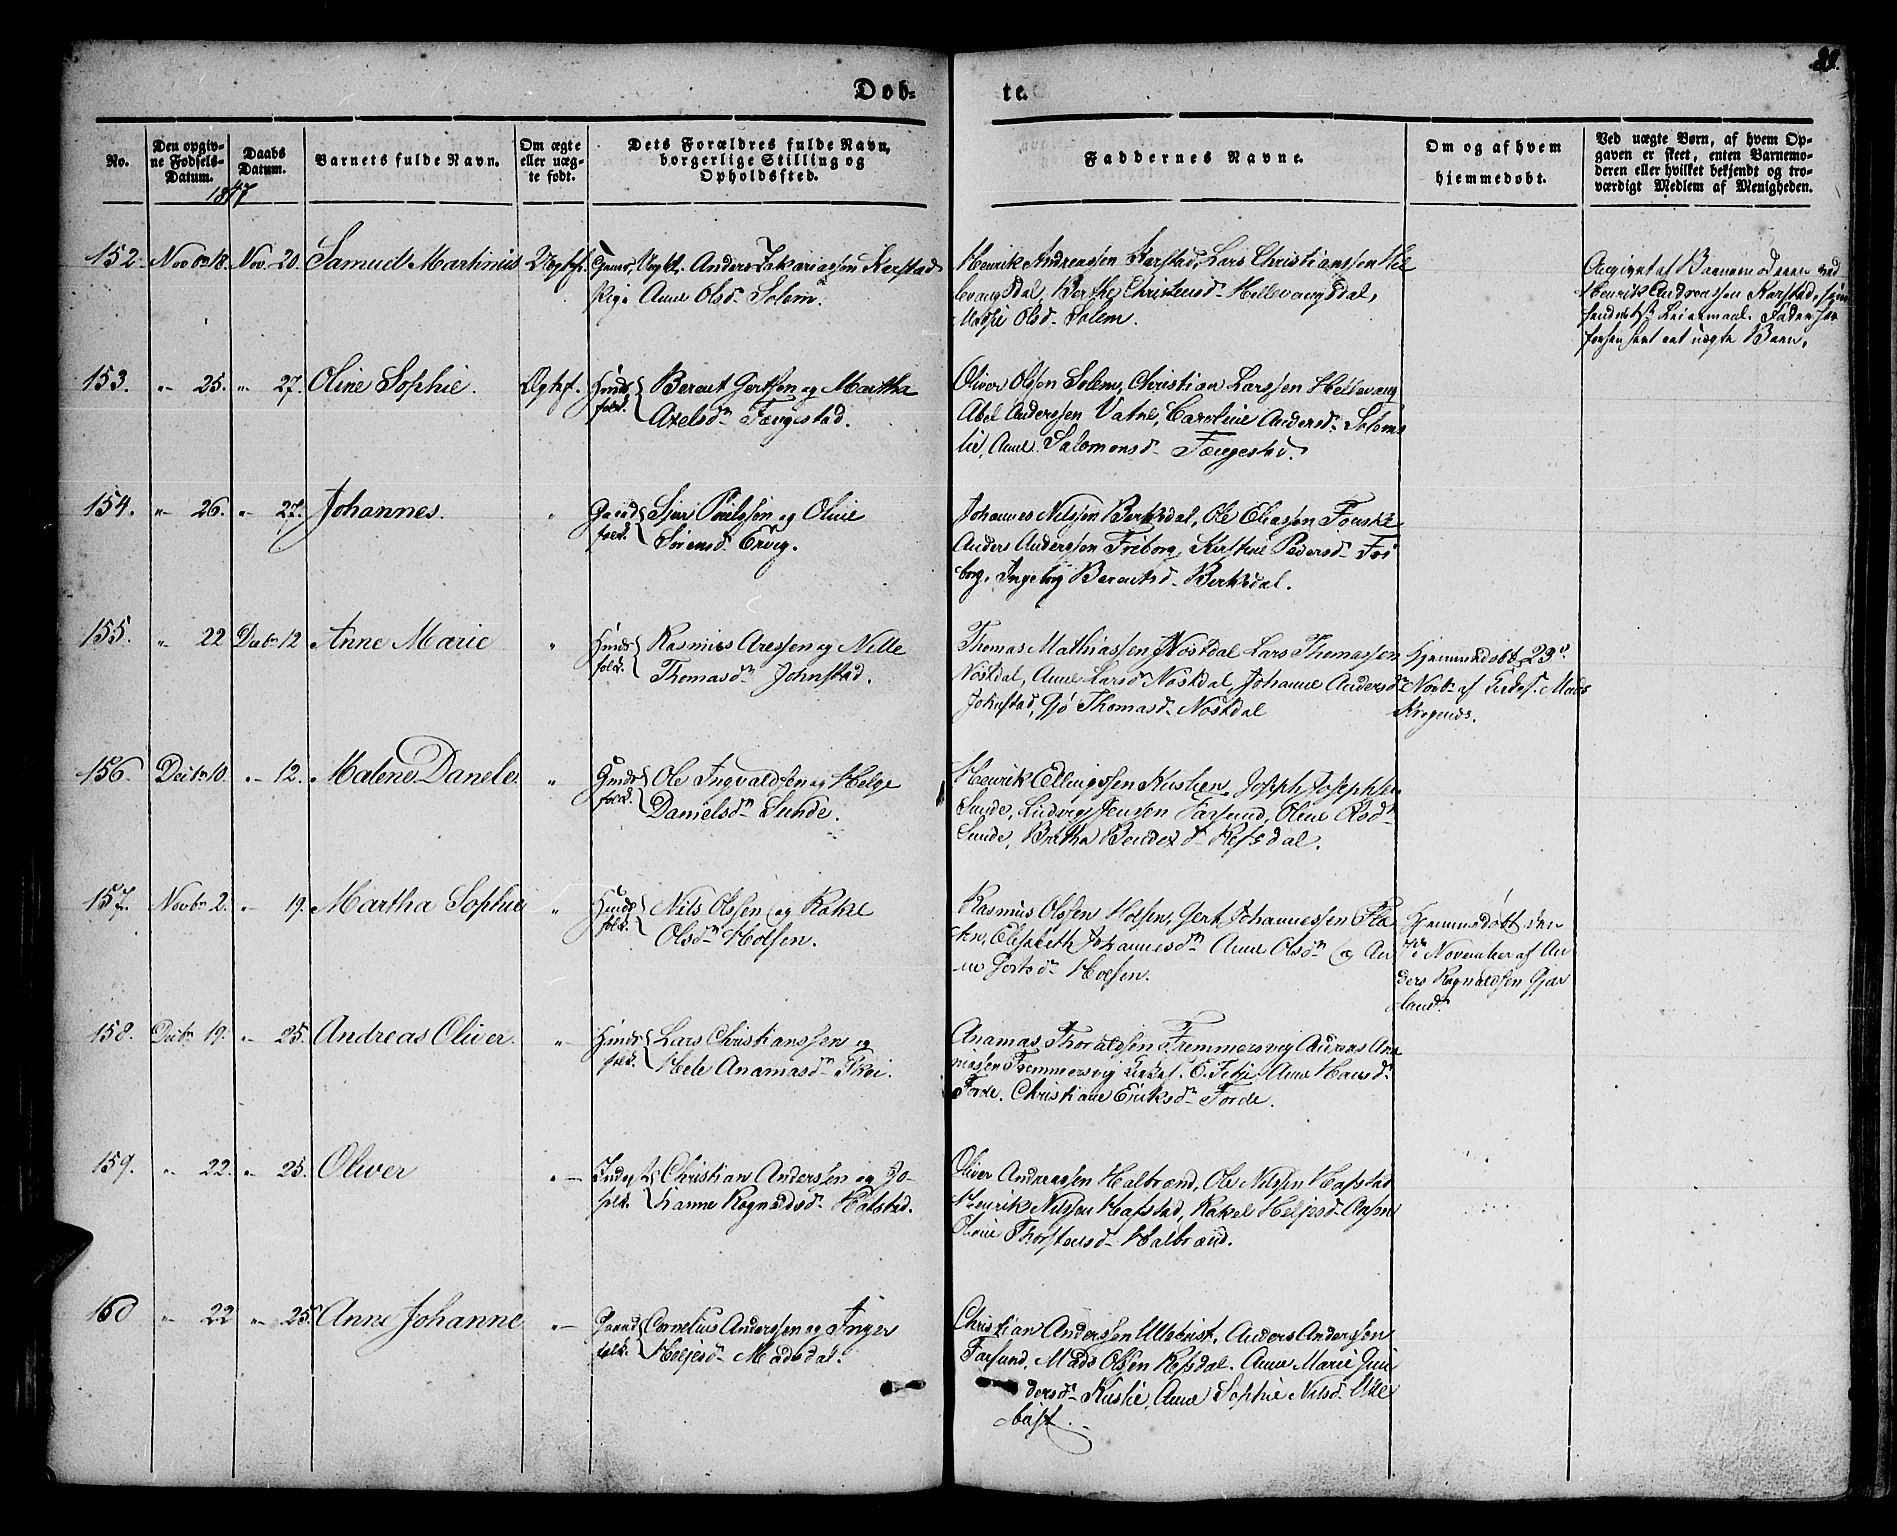 Døb- te.
No.
Den opgiv-
ne Fødsels-
Datum.
Daabs
Datum.
1847
Barnets fulde Navn.
Om ægte
eller uæg-
te født.
Dets Forældres fulde Navn,
borgerlige Stilling og
Opholdssted.
Faddernes Navne.
Om og af hvem
hjemmedøbt.
Ved uægte Børn, af hvem Op-
gaven er skeet, enten Barnemo-
deren eller hvilket bekjendt og tro-
værdigt Medlem af Menigheden.
152. Novbr 18. Nov. 20. Samuel Martinus
Anders Zakariassen Karstad
Pige Anne Olsdr Solem.
Henrik Andreassen Karstad, Lars Christianssen Hel
levangsdal, Berthe Christensd. Hellevangsdal,
Olsd. Solem.
Angivet af Barnemoderen ved
Henrik Andreassen Karstad,
Leiermaal. Faderen har
forhen havt eet uægte Barn.
153. " 25. " 27. Oline Sophie. Ægtef.
Huus
folk.
Berent Gertsen og Martha
Axelsdr Fængestad.
Oliver Olsson Solem, Christian Larssen Hellevang
Abel Anderssen Vatne, Caroline Andersd. Solems
lie, Anne Salomonsd. Fængestad.
154. " 26. " 27. Johannes. "
Gaard
folk.
og Oline
Sørensd. Erveg.
Johannes Nilssen Berksdal, Ole Eliassen
Anders Anderssen Friborg, Kirstine Pedersd. Fri
borg, Ingeborg Berentsd. Berksdal.
155. " 22 Decbr 12 Anne Marie "
Huus
folk.
Rasmus Aressen og Nille
Thomasdr Johnstad.
Thomas Mathiassen Nøstdal Lars Thomassen
Nøstdal, Anne Larsd. Nøstdal, Johanne Andersdr
Johnstad, Gjø Thomasd. Nøstdal
Hjemmedøbt 23de
Novbr af Mads
156. Decbr 10. " 12. Malene Danele "
Huus
folk.
Ole Ingvaldsen og Helge
Danielsdr Sunde.
Henrik Ellingssen Joseph Josephsen
Sunde, Ludvig Jensen Farsund, Oline Olsdr
Sunde, Britha Bendixd. Refsdal.
157. Novbr 2. " 19. Martha Sophie "
Huus
folk.
Nils Olssen og Rakel
Olsdr Holsen.
Rasmus Olssen Holsen, Gert Johannessen Fla
ten, Elisabeth Johannesdr Anne Olsdr og An
ne Gertsdr Holsen.
Hjemmedøbt den
November af An
ders Ragnaldsen Gjør
land.
158. Decbr 19. " 25. Andreas Oliver. "
Huus
folk.
Lars Christianssen og
Hele Anamasdr Skei.
Anamas Thoralfsen Fremmersvig Andreas Ana
massen Fremmersvig Anne Hansdr
Førde. Christiane Eriksdr Førde.
159. " 22. " 25. Oliver "
folk.
Christian Anderssen og Jo-
hanne Ragnaldsdr Hafstad.
Oliver Andreassen Halbrend, Ole Nilssen Hafstad
Henrik Nilssen Hafstad, Rakel Heljesd.
Oline Thorstensd. Halbrend.
160 " 22 " 25. Anne Johanne "
Gaard
folk.
Cornelius Anderssen og Inger
Heljesdr Mådsdal.
Christian Anderssen Anders Anderssen
Farsund, Mads Olssen Refsdal. Anne Marie Gun
dersdr Anne Sophie Nilsd.